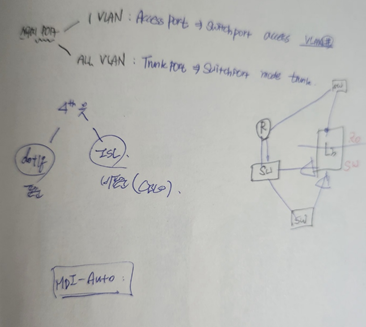 1 VLAN : Access port ⇒ Switchport access VLAN
ALL VLAN : Trunk Port ⇒ Switchport mode trunk
dot1q
ISL
표준
비표준 (CISCO).
R
SW
SW
SW
MDI-Auto